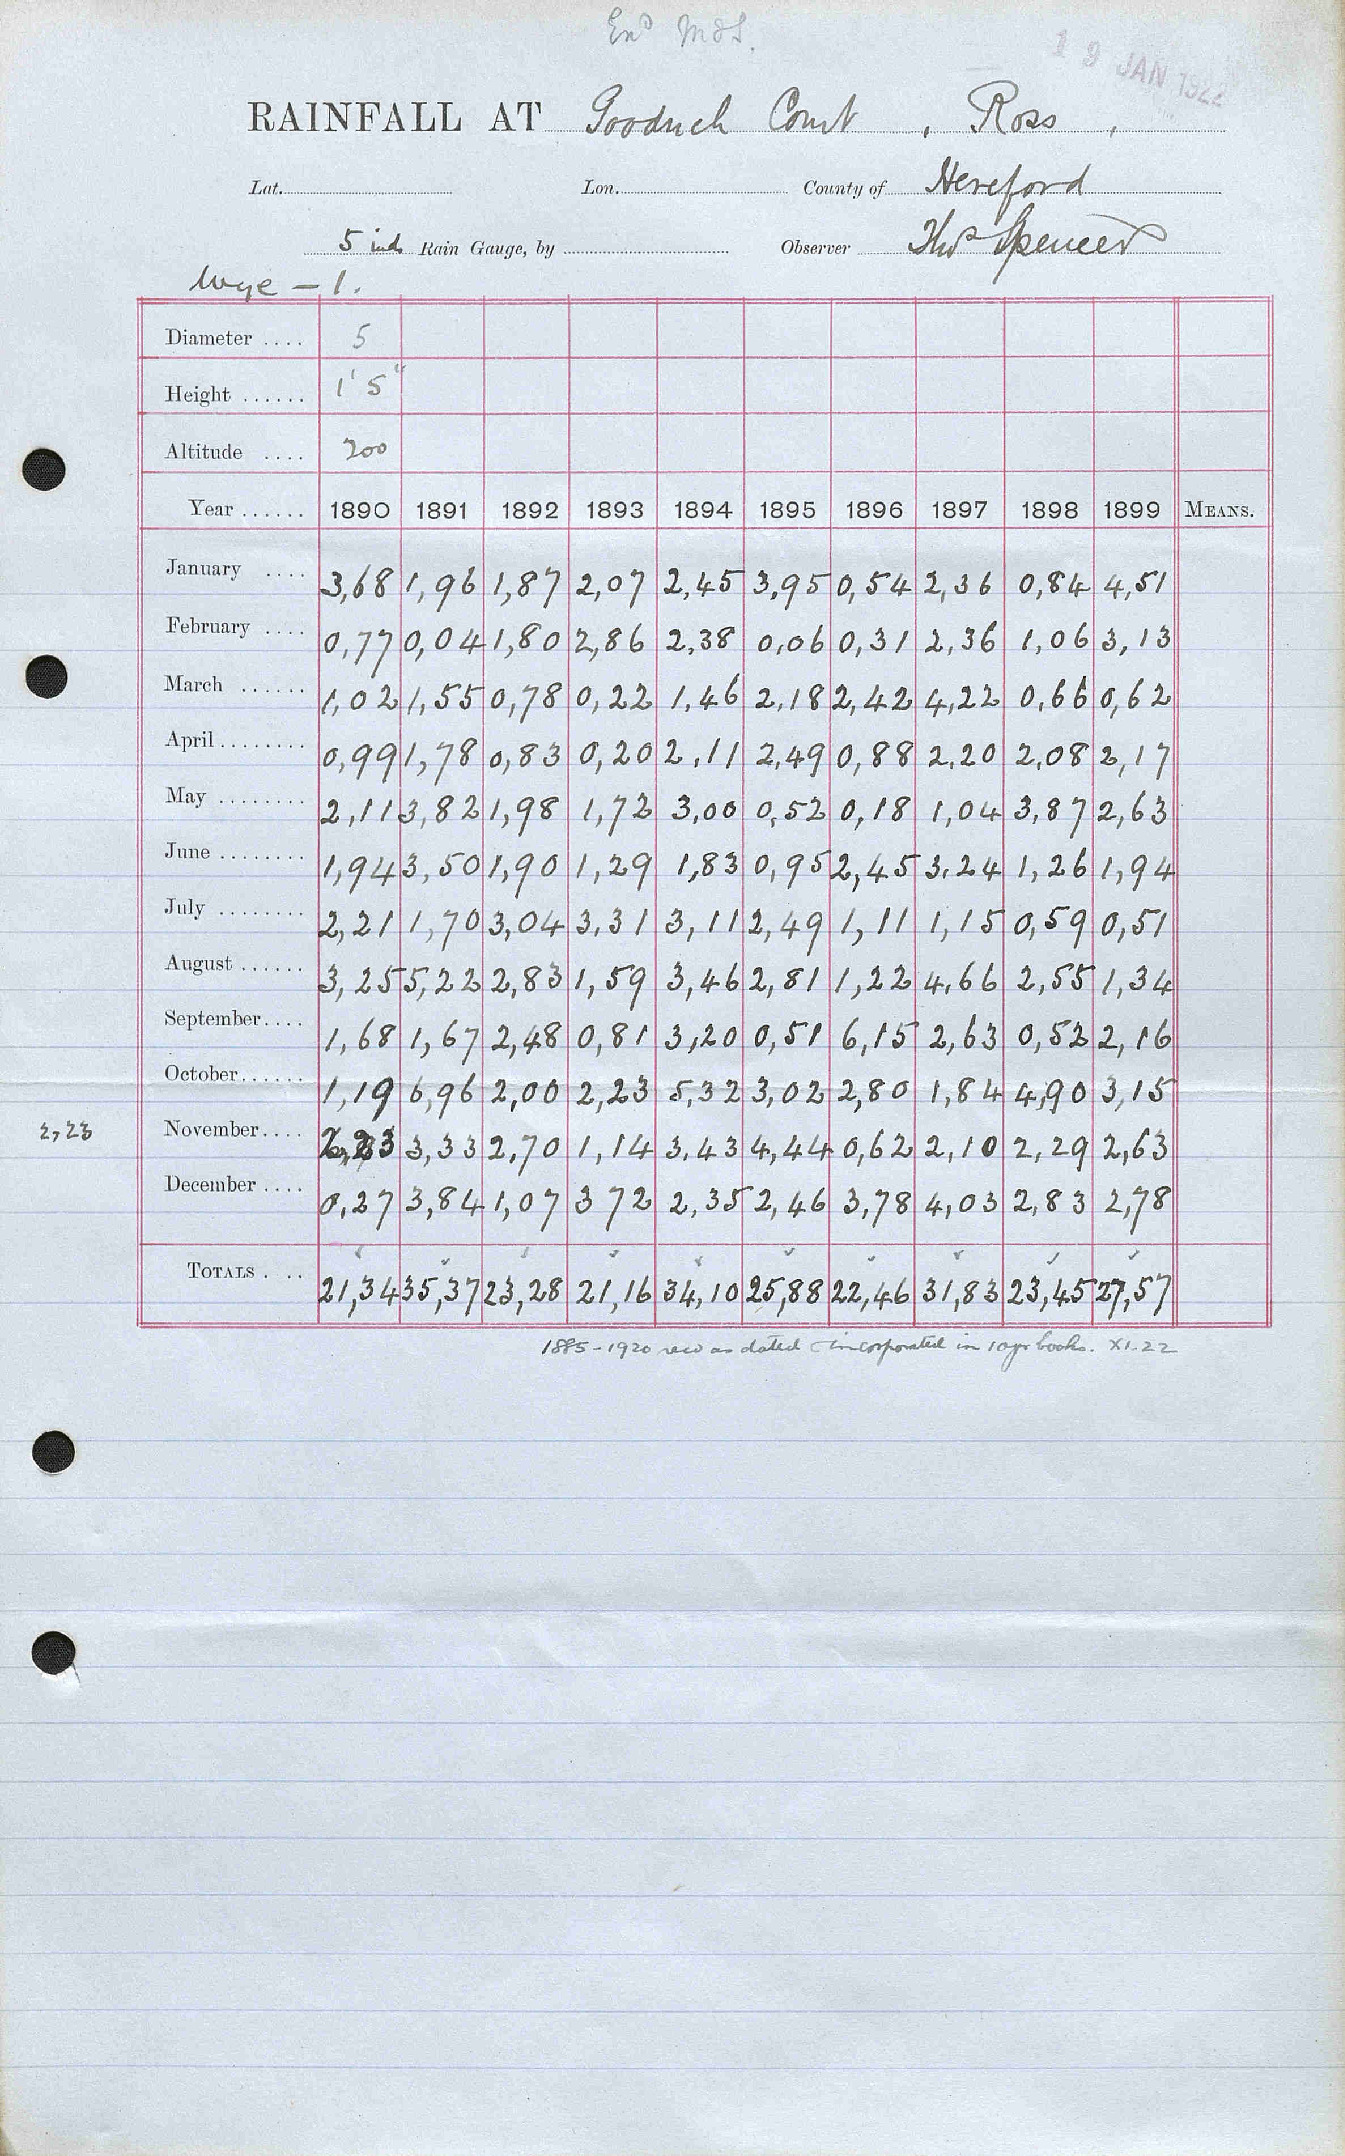 End M&S.
19 JAN 1922
RAINFALL AT Goodrich Court, Ross,
Lat. Lon. County of Hereford
5 ind Rain Gauge, by Observer Thos Spencer
Wye – 1.
Diameter .... 5
Height ...... 1' 5"
Altitude .... 200
Year ...... 1890 1891 1892 1893 1894 1895 1896 1897 1898 1899 MEANS.
January .... 3,68 1,96 1,87 2,07 2,45 3,95 0,54 2,36 0,84 4,51
February .... 0,77 0,04 1,80 2,86 2,38 0,06 0,31 2,36 1,06 3,13
March ...... 1,02 1,55 0,78 0,22 1,46 2,18 2,42 4,22 0,66 0,62
April ........ 0,99 1,78 0,83 0,20 2,11 2,49 0,88 2,20 2,08 2,17
May ........ 2,11 3,82 1,98 1,72 3,00 0,52 0,18 1,04 3,87 2,63
June ........ 1,94 3,50 1,90 1,29 1,83 0,95 2,45 3,24 1,26 1,94
July ........ 2,21 1,70 3,04 3,31 3,11 2,49 1,11 1,15 0,59 0,51
August ...... 3,25 5,22 2,83 1,59 3,46 2,81 1,22 4,66 2,55 1,34
September.... 1,68 1,67 2,48 0,81 3,20 0,51 6,15 2,63 0,52 2,16
October...... 1,19 6,96 2,00 2,23 5,32 3,02 2,80 1,84 4,90 3,15
2,23 November.... 2,23 3,33 2,70 1,14 3,43 4,44 0,62 2,10 2,29 2,63
December .... 0,27 3,84 1,07 3 72 2,35 2,46 3,78 4,03 2,83 2,78
TOTALS . .. 21,34 35,37 23,28 21,16 34,10 25,88 22,46 31,83 23,45 27,57
1885-1920 recd as dated & incorporated in 10yr books. XI.22